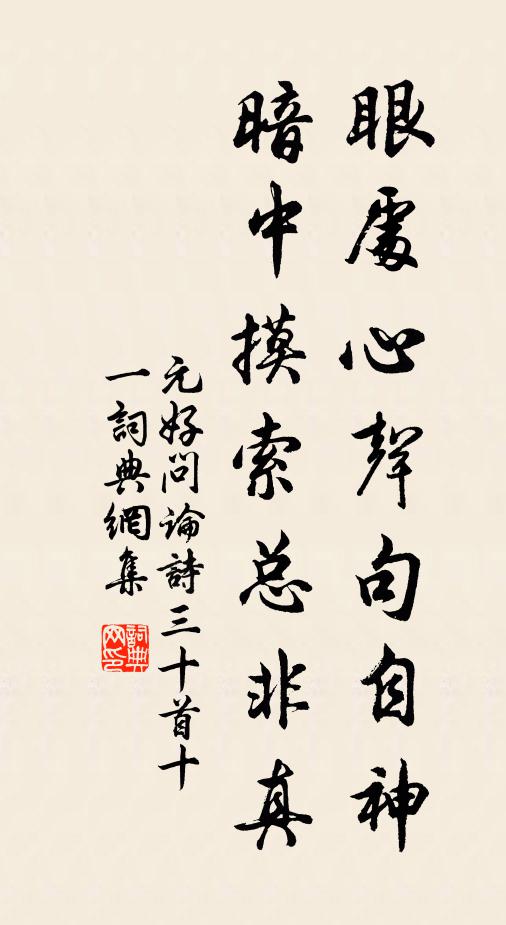 眼處心聲句自神
暗中摸索总非真
元好問論詩三十首十
一詞典網集
詞典网印